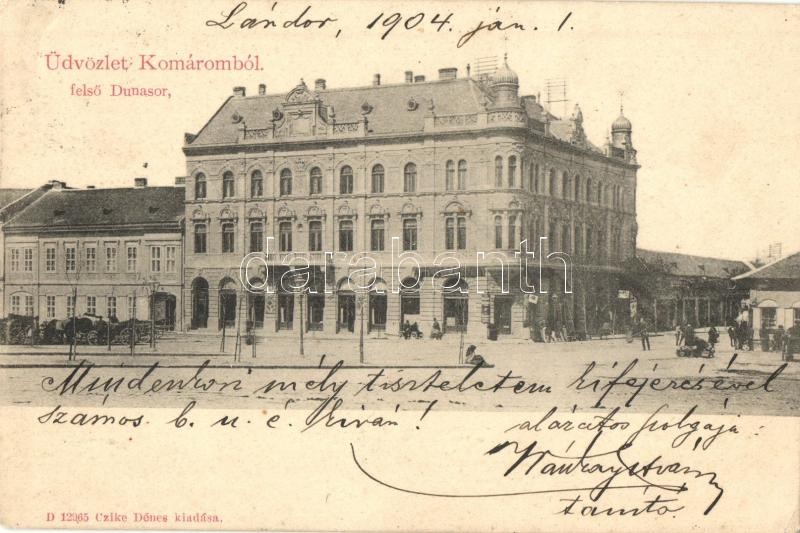 Lándor, 1904 ján. 1.
Üdvözlet Komáromból.
felső Dunasor,
darabanth
Mindenkori mély tiszteletem kifejezésével
számos b. u. é. kiván!
alázatos szolgája:
István
tanító.
D 12965 Czike Dénes kiadása.